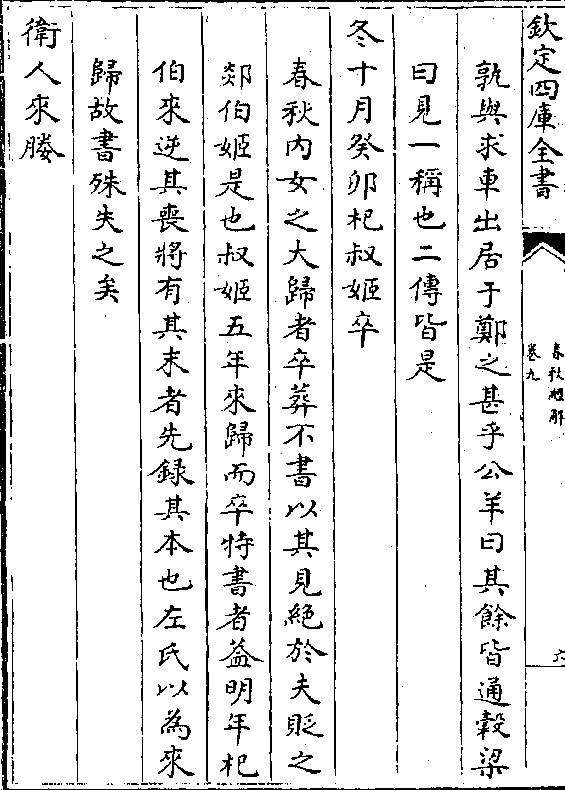 欽定四庫全書
春秋經解
卷九
六
孰與求車出居于鄭之甚乎公羊曰其餘皆通穀梁
曰見一稱也二傳皆是
冬十月癸卯杞叔姬卒
春秋内女之大歸者卒葬不書以其見絶於夫貶之
郯伯姬是也叔姬五年來歸而卒特書者葢明年杞
伯來逆其喪將有其末者先録其本也左氏以為來
歸故書殊失之矣
衛人來媵